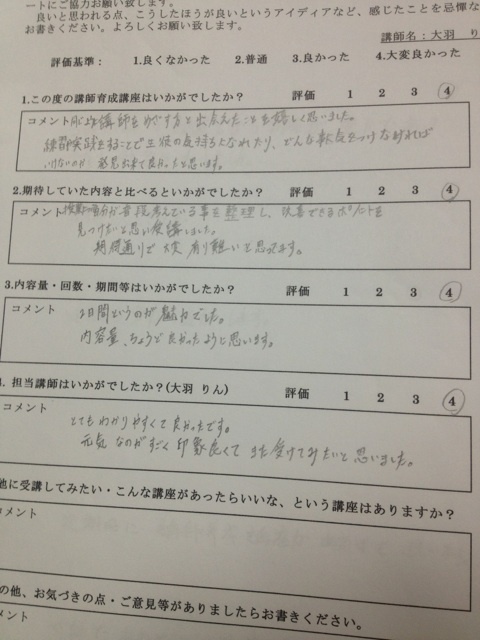 ートにご協力お願い致します。
良いと思われる点、こうしたほうが良いというアイディアなど、感じたことを忌憚な
お書きください。よろしくお願い致します。
講師名：大羽 り
評価基準： 1.良くなかった 2.普通 3.良かった 4.大変良かった
1.この度の講師育成講座はいかがでしたか？ 評価 1 2 3 4
コメント 講師をめざす方と出会えたことを嬉しく思いました。
練習実践をすることで生徒の気持ちになれたり、どんな事に気をつけなければ
いけないのか 発見出来て良かったと思います。
2.期待していた内容と比べるといかがでしたか？ 評価 1 2 3 4
コメント 自分が普段考えている事を整理し、改善できるポイントを
見つけたいと思い受講しました。
期待通りで大変有り難いと思ってます。
3.内容量・回数・期間等はいかがでしたか？ 評価 1 2 3 4
コメント
2日間というのが魅力でした。
内容量、ちょうど良かったように思います。
3. 担当講師はいかがでしたか？(大羽 りん) 評価 1 2 3 4
コメント
とてもわかりやすくて良かったです。
元気なのがすごく印象良くて また受けてみたいと思いました。
他に受講してみたい・こんな講座があったらいいな、という講座はありますか？
コメント
の他、お気づきの点・ご意見等がありましたらお書きください。
メント